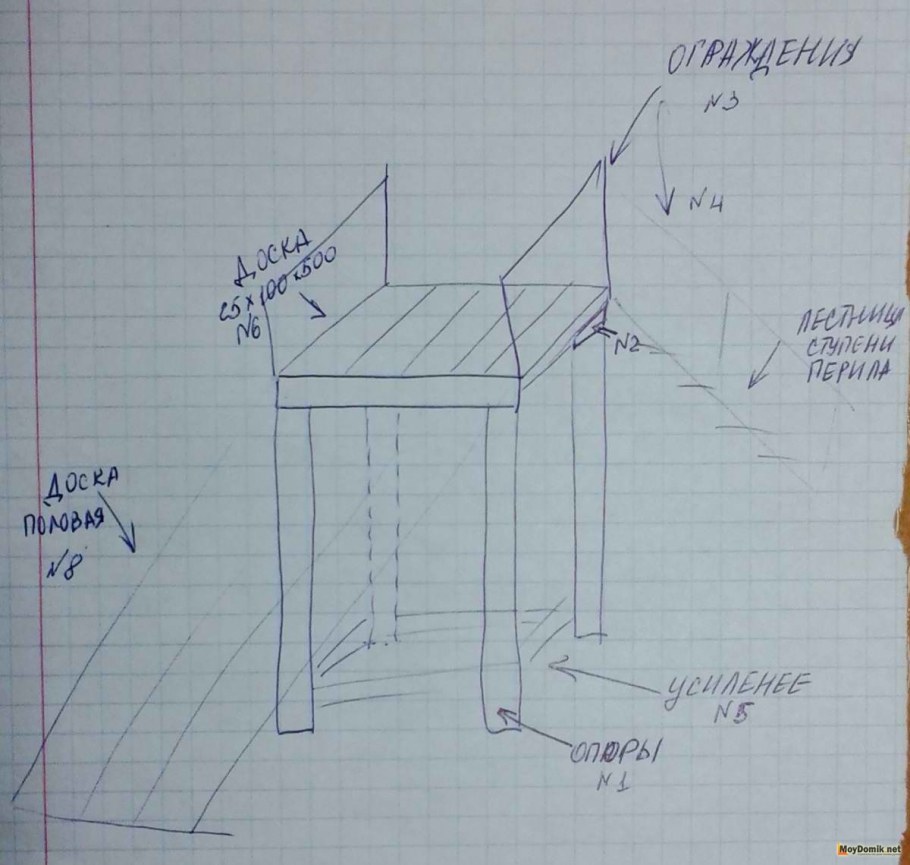 ОГРАЖДЕНИЯ
№3
№4
ДОСКА
25×100×500
№6
№2
ЛЕСТНИЦ
СТУПЕНИ
ПЕРИЛА
ДОСКА
ПОЛОВАЯ
№8
УСИЛЕНЕЕ
№5
ОПОРЫ
№1
MoyDomik.net